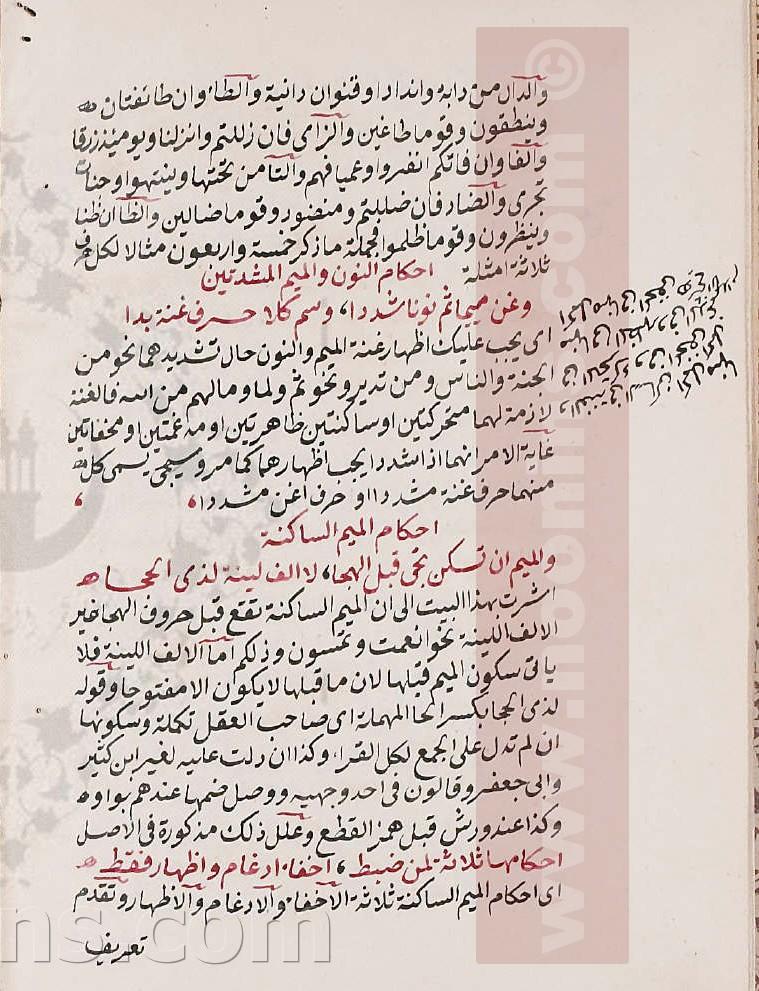 والدال من دابة واندادا وقنوان دانية والطاء وان طائفتان
وينطقون وقوما طاغين والزاى فان زللتم وانزلنا ويومئذ زرقا
والفا وان فاتكم انفروا وعميا فهم والتا من تحتها وينتهوا وجنات
تجرى والضاد فان ضللتم ومنضود وقوما ضالين والظا ان ظنا
وينظرون وقوما ظلموا فجملة ما ذكر خمسة واربعون مثالا لكل حرف
ثلاثة امثلة احكام النون والميم المشددتين
وغن ميما ثم نونا شددا، وسم كلا حرف غنة بدا
اى يجب عليك اظهار غنة الميم والنون حال تشديدهما نحو من
الجنة والناس ومن تدير ونحو ثم ولما ومالهم من الله فالغنة
لازمة لهما متحركتين اوساكنتين ظاهرتين اومدغمتين اومخفاتين
غاية الامر انهما اذا شددا يجب اظهارهما كما مر ويسمى كل
منهما حرف غنة مشددا او حرف اغن مشددا
احكام الميم الساكنة
والميم ان تسكن تجى قبل الهجا، لا الف لينة لذى الحجا
اشرت بهذا البيت الى ان الميم الساكنة تقع قبل حروف الهجا غير
الالف اللينة نحو انعمت وتمسون وذلكم اما الالف اللينة فلا
ياتى سكون الميم قبلها لان ما قبلها لا يكون الا مفتوحا وقوله
لذى الحجا بكسر الحا المهملة اى صاحب العقل تكملة وسكونها
ان لم تدل على الجمع لكل القراء وكذا ان دلت عليه لغير ابن كثير
وابى جعفر وقالون فى احد وجهيه ووصل ضمها عندهم بواو
وكذا عند ورش قبل همز القطع وعلل ذلك مذكورة فى الاصل
احكامها ثلاثة لمن ضبط، اخفاء ادغام واظهار فقط
اى احكام الميم الساكنة ثلاثة الاخفاء والادغام والاظهار وتقدم
تعريف
www.noormags.com ©